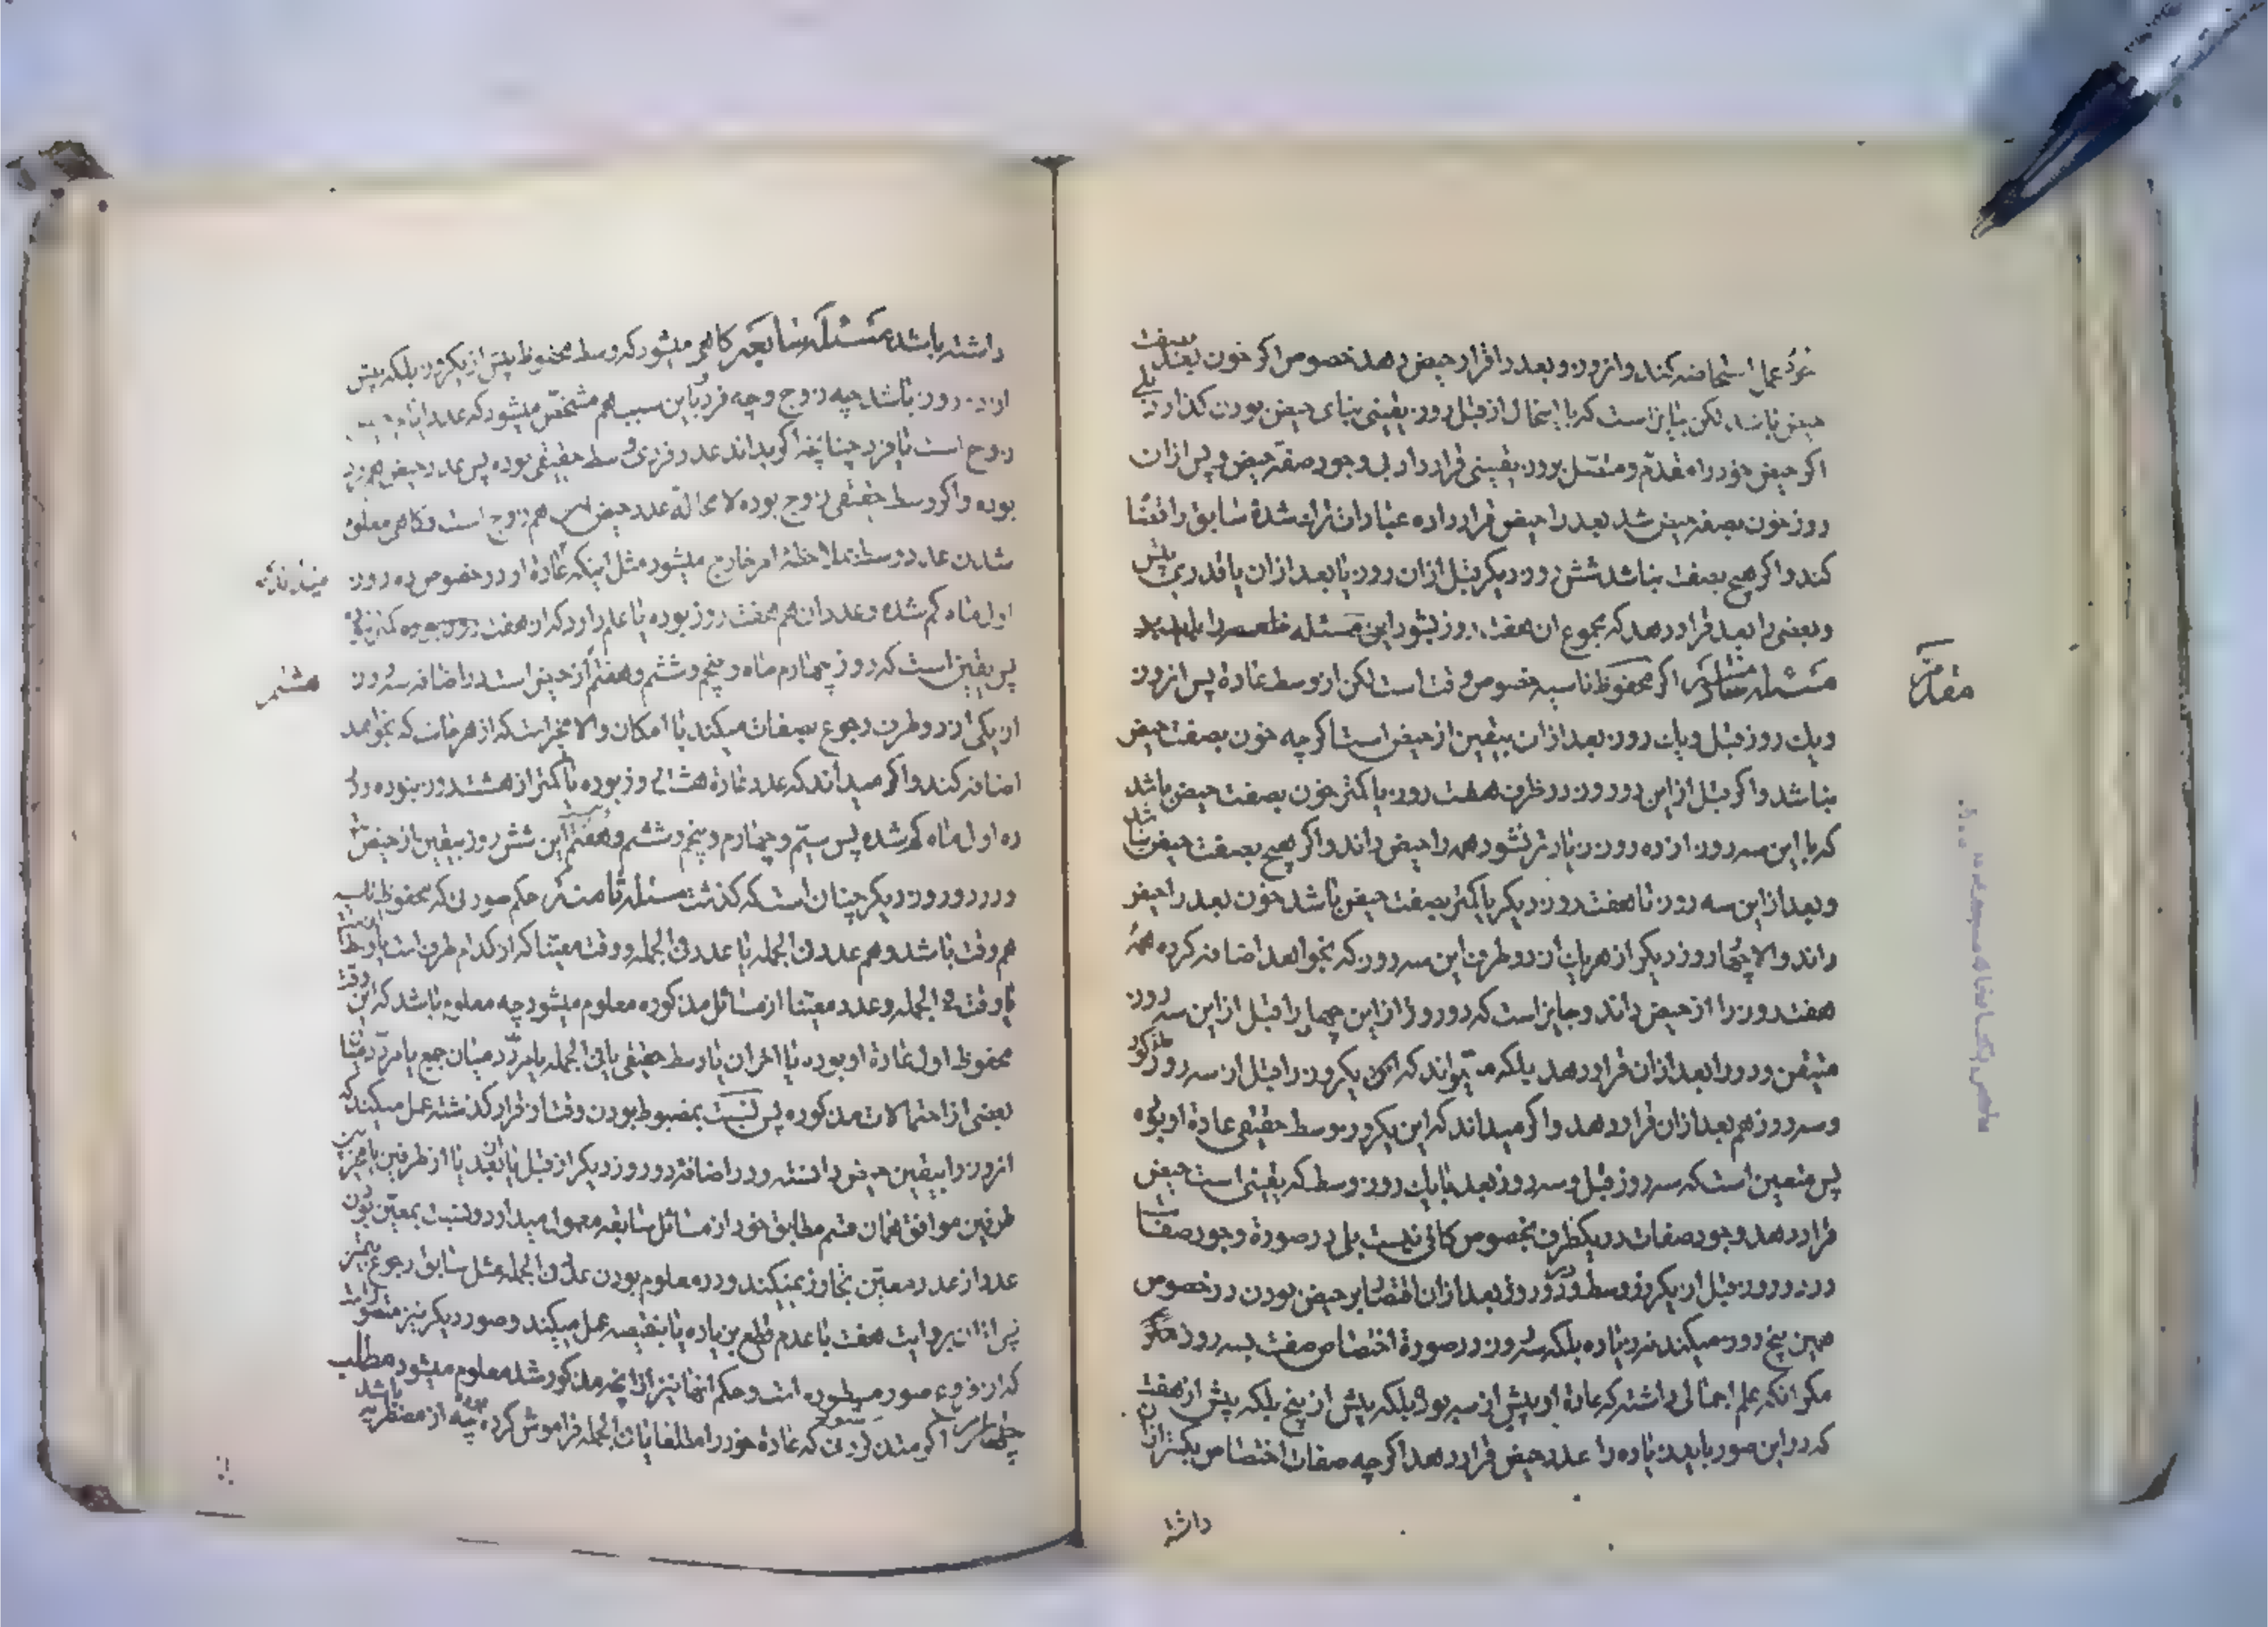 خود عمل استحاضه کند و از روز و بعد را قرار حیض دهد خصوص اگر خون بعد بصفت
حیض باشد لکن بنابر است که با احتمال از قبل روز یقینی بنای حیض بودن گذارد بلی
اگر حیض خود را مقدم و متصل بروز یقینی قرار داد بی وجود صفة حیض و پس از ان
روز خون بصفة حیض شد بعد را حیض قرار داده عبادات ترک شدهٔ سابق را قضا
کند و اگر هیچ بصفت نباشد شش روز دیگر قبل از ان روز یا بعد از ان یا قدری پیش
و بعضی را بعد قرار دهد که مجموع ان هفت روز بشود این مسئله
مسئله اگر محفوظ ناسیه خصوص وقت است لکن از وسط عادة پس از روز
و یک روز قبل و یک روز بعد از ان بیقین از حیض است اگر چه خون بصفت حیض
نباشد و اگر قبل از این دو روز در ظرف هفت روز یا کمتر خون بصفت حیض باشد
که با این سه روز از ده روز زیادتر نشود همه را حیض داند و اگر هیچ بصفت حیض نباشد
و بعد از این سه روز تا هفت روز دیگر یا کمتر بصفت حیض باشد خون بعد را حیض
داند و الا چهار روز دیگر از هر یک از دو طرف این سه روز که بخواهد اضافه کرده همهٔ
هفت روز را از حیض داند و جایز است که دو روز از این چهار را قبل از این سه روز
متیقن و دو را بعد از ان قرار دهد بلکه میتواند که یکروز را قبل از سه روز مذکور
و سه روز هم بعد از ان قرار دهد و اگر میداند که این یکروز وسط حقیقی عادة او بوده
پس متعین است که سه روز قبل و سه روز بعد با یک روز وسط که یقینی است حیض
قرار دهد وجود صفات در یکطرف بخصوص کافی نیست بلی در صورة وجود صفات
در دو روز قبل از یکروز وسط و دو روز بعد از ان اقتصار بر حیض بودن در خصوص
همین پنج روز میکند نه زیاده بلکه سه روز در صورة اختصاص صفت بسه روز
مگر انکه علم اجمالی داشته که عادة او بیش از سه بوده بلکه بیش از پنج بلکه بیش از هفت
که در این صور باید زیاده را عدد حیض قرار دهد اگر چه صفات اختصاص بکمتر از ان
داشته
داشته باشد مسئلهٔ سابعه گاهی میشود که وسط محفوظ بیش از یکروز بلکه بیش
از دو روز باشد چه زوج و چه فرد باین سبب هم مشخص میشود که عدد ایام
زوج است یا فرد چنانچه اگر بداند عدد فردی وسط حقیقی بوده پس عدد حیض هم فرد
بوده و اگر وسط حقیقی زوج بوده لا محاله عدد حیض هم زوج است و گاهی معلوم
شدن عدد وسط بملاحظهٔ امر خارج میشود مثل اینکه عادة او در خصوص ده روز
اول ماه گم شده و عدد ان هم هفت روز بوده یا علم دارد که از هفت روز نبوده کمتر
پس یقین است که روز چهارم ماه و پنجم و ششم و هفتم از حیض است در اضافه سه روز
هشتم
از یکی از دو طرف رجوع بصفات میکند با امکان و الا مخیر است که از هر جانب که بخواهد
اضافه کند و اگر میداند که عدد عادة هشت روز بوده یا کمتر از هشت روز نبوده و در
ده اول ماه گم شده پس سیم و چهارم و پنجم و ششم و هفتم این شش روز بیقین از حیض
و در دو روز دیگر چنان است که گذشت مسئله ثامنه حکم صورتی که محفوظ ناسیه
هم وقت باشد و هم عدد فی الجمله یا عدد فی الجمله و وقت معینا که از کدام طرف است
یا وقت فی الجمله و عدد معینا از مسائل مذکوره معلوم میشود چه معلوم باشد که این وقت
محفوظ اول عادة او بوده یا اخر ان یا وسط حقیقی یا فی الجمله یا مردد میان جمیع یا مردد میان
بعضی از احتمالات مذکوره پس نسبت بمضبوط بودن وقت از قرار گذشته عمل میکند که
انروز را بیقین حیض دانسته و در اضافه دو روز دیگر از قبل یا بعد یا از طرفین
طرفین موافق همان قسم مطابق خود از مسائل سابقه معمول میدارد و نسبت بمعین بودن
عدد از عدد معین تجاوز نمیکند و در معلوم بودن عدد فی الجمله مثل سابق رجوع بتمیز
پس از ان بروایت هفت با عدم قطع بزیاده یا بنقیصه عمل میکند و صور دیگر نیز متصور است
که از فروع صور مسطوره است و حکم انها نیز از انچه مذکور شد معلوم میشود مطلب
چهارم اگر که عادة خود را مطلقا یا فی الجمله فراموش کرده چه از مضطربه باشد